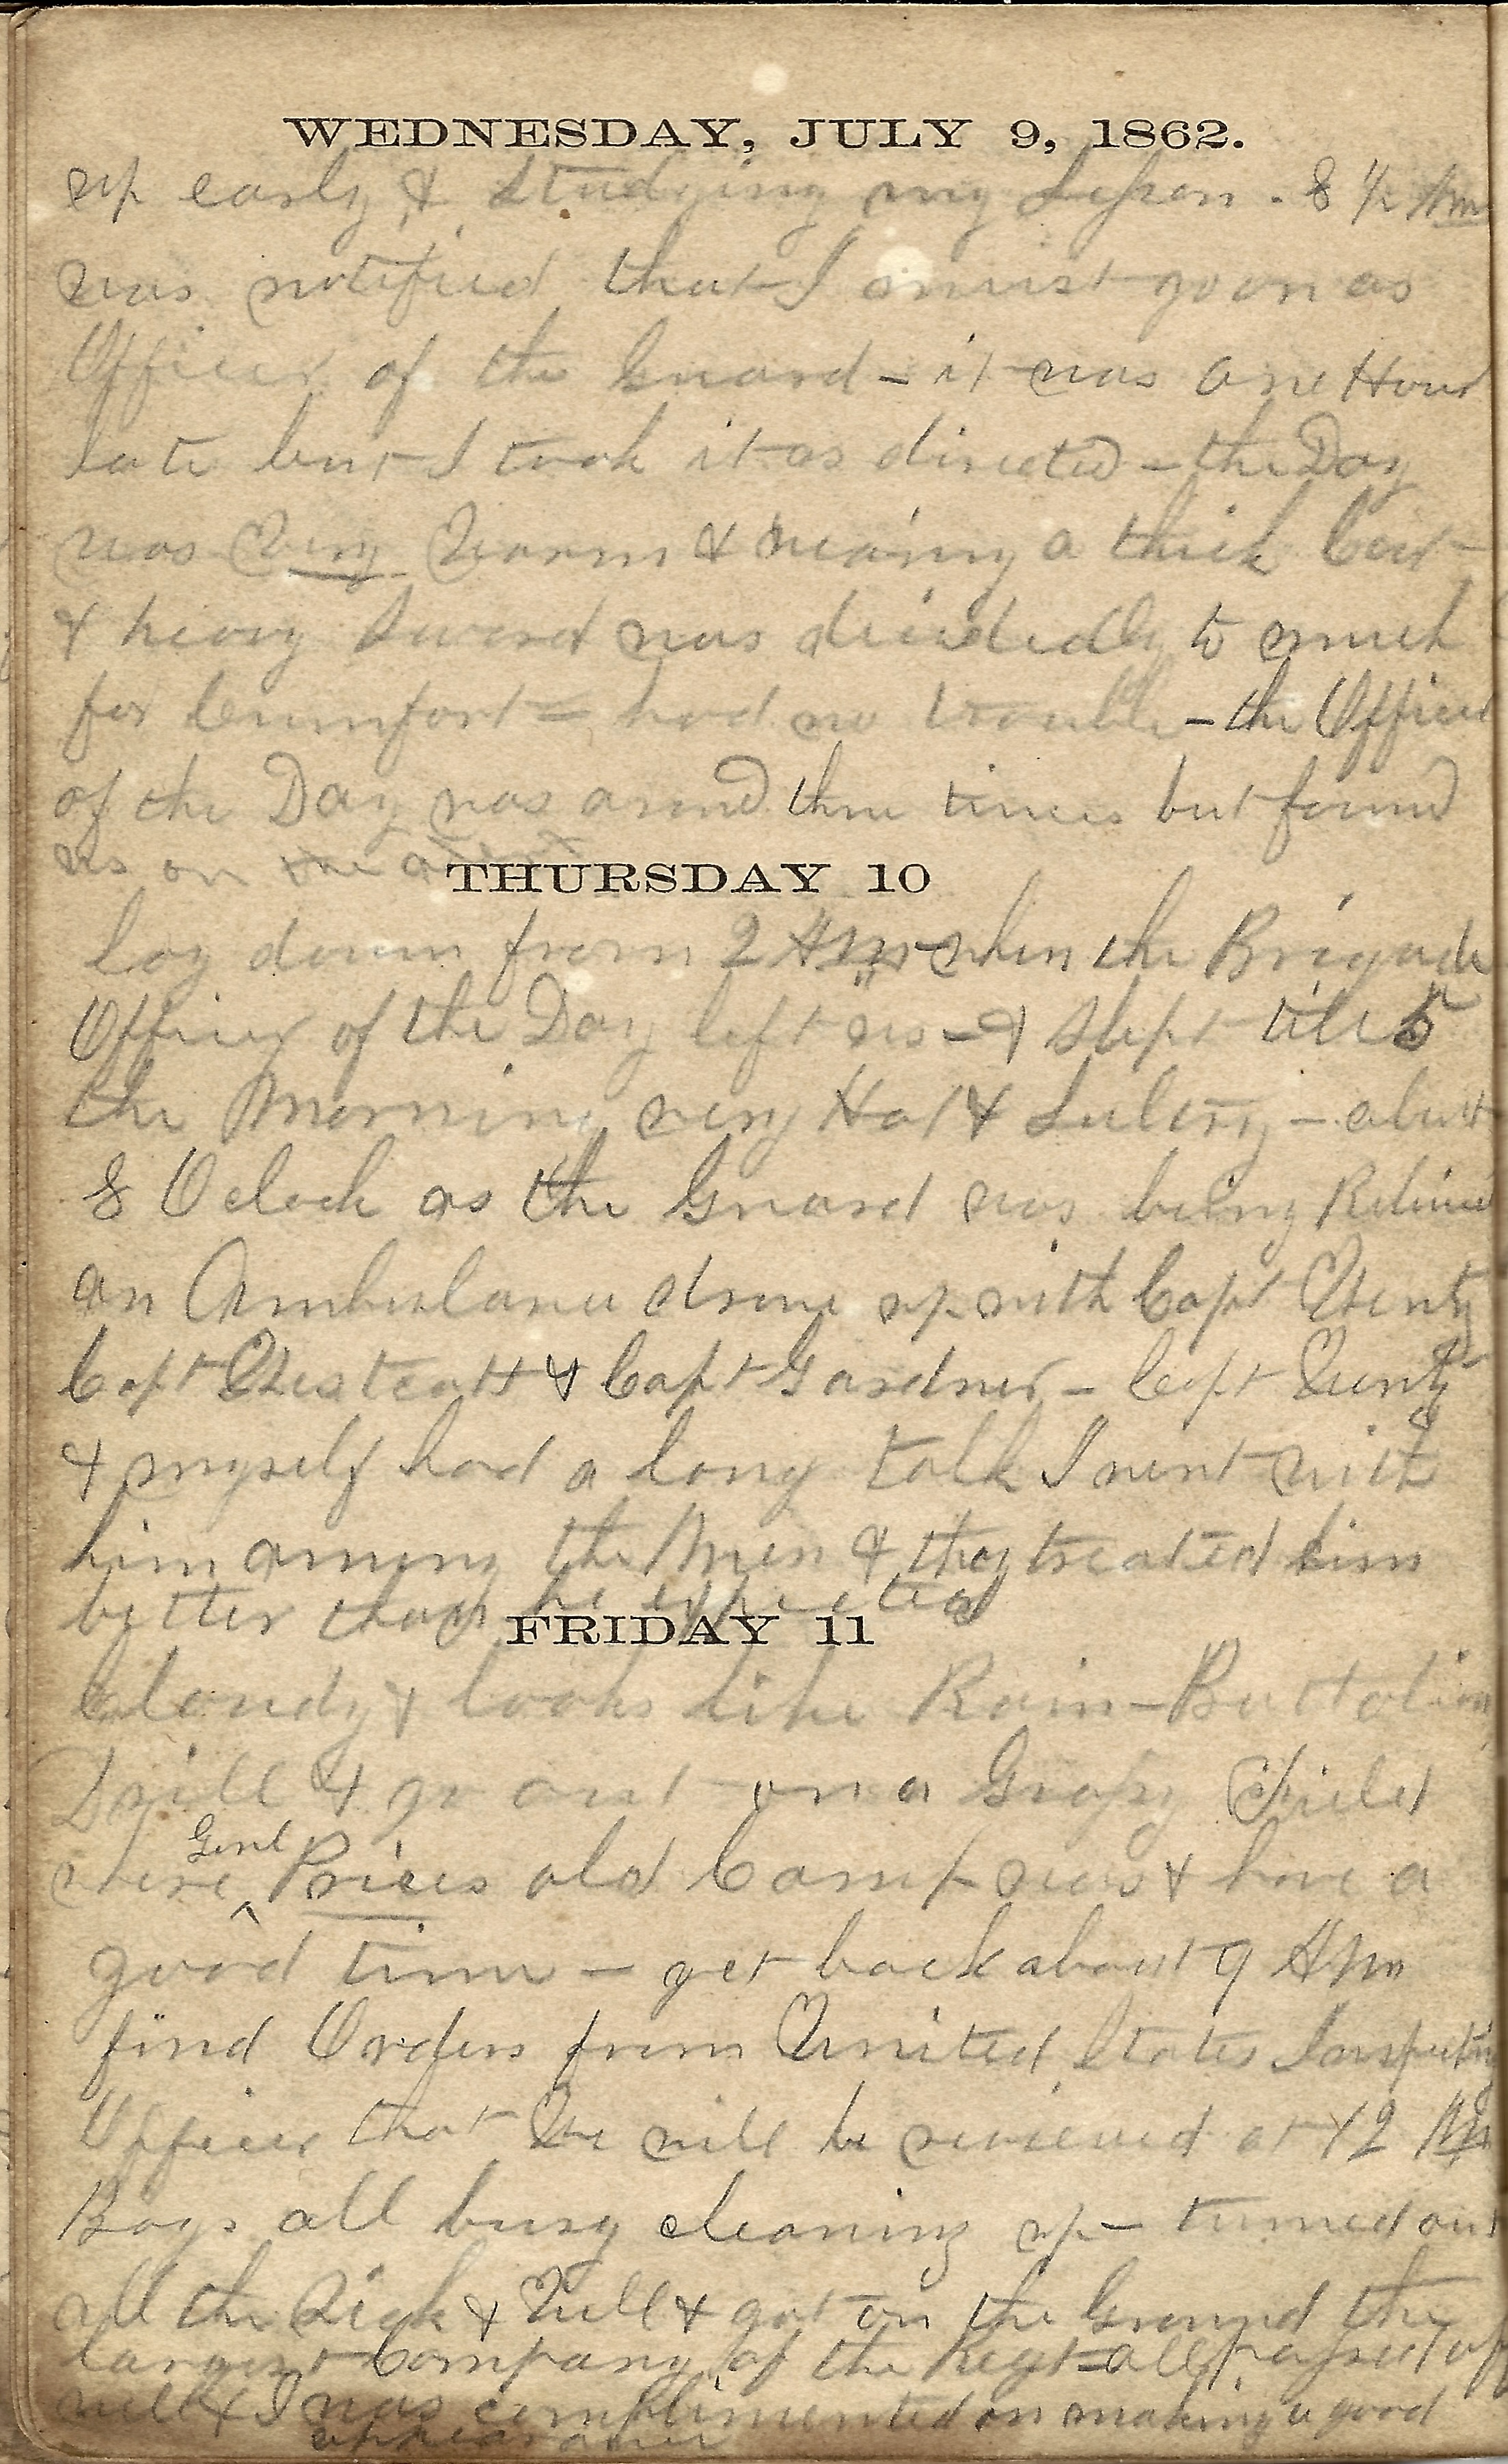 WEDNESDAY, JULY 9, 1862.
up early & studying my Lesson . 8 1/2 Am
was notified that I must go on as
Officer of the Guard – it was one Hour
late but I took it as directed – the Day
was Very Warm & wearing a thick Coat
& heavy Sword was decidedly to much
for Comfort = had no trouble – the Officer
of the Day was around three times but found
us on the alert
THURSDAY 10
lay down from 2 Am when the Brigade
Officer of the Day left us – & Slept till 5
the Morning very Hot & Sultry – about
8 Oclock as the Guard was being Relieved
an Ambulance drove up with Capt
Capt & Capt Gardner – Capt
& myself had a long talk I went with
him among the Men & they treated him
better than he expected
FRIDAY 11
Cloudy & looks like Rain – Battalion
Drill & go out on a Grassy Field
where Genl Prices old Camp was & have a
good time – get back about 9 Am
find Orders from United States Inspecting
Officer that We will be reviewed at 12 M
Boys all busy cleaning up – turned out
all the Sick & Well & got on the Ground the
largest Company of the Regt – all passed off
well & I was complimented on making a good
appearance